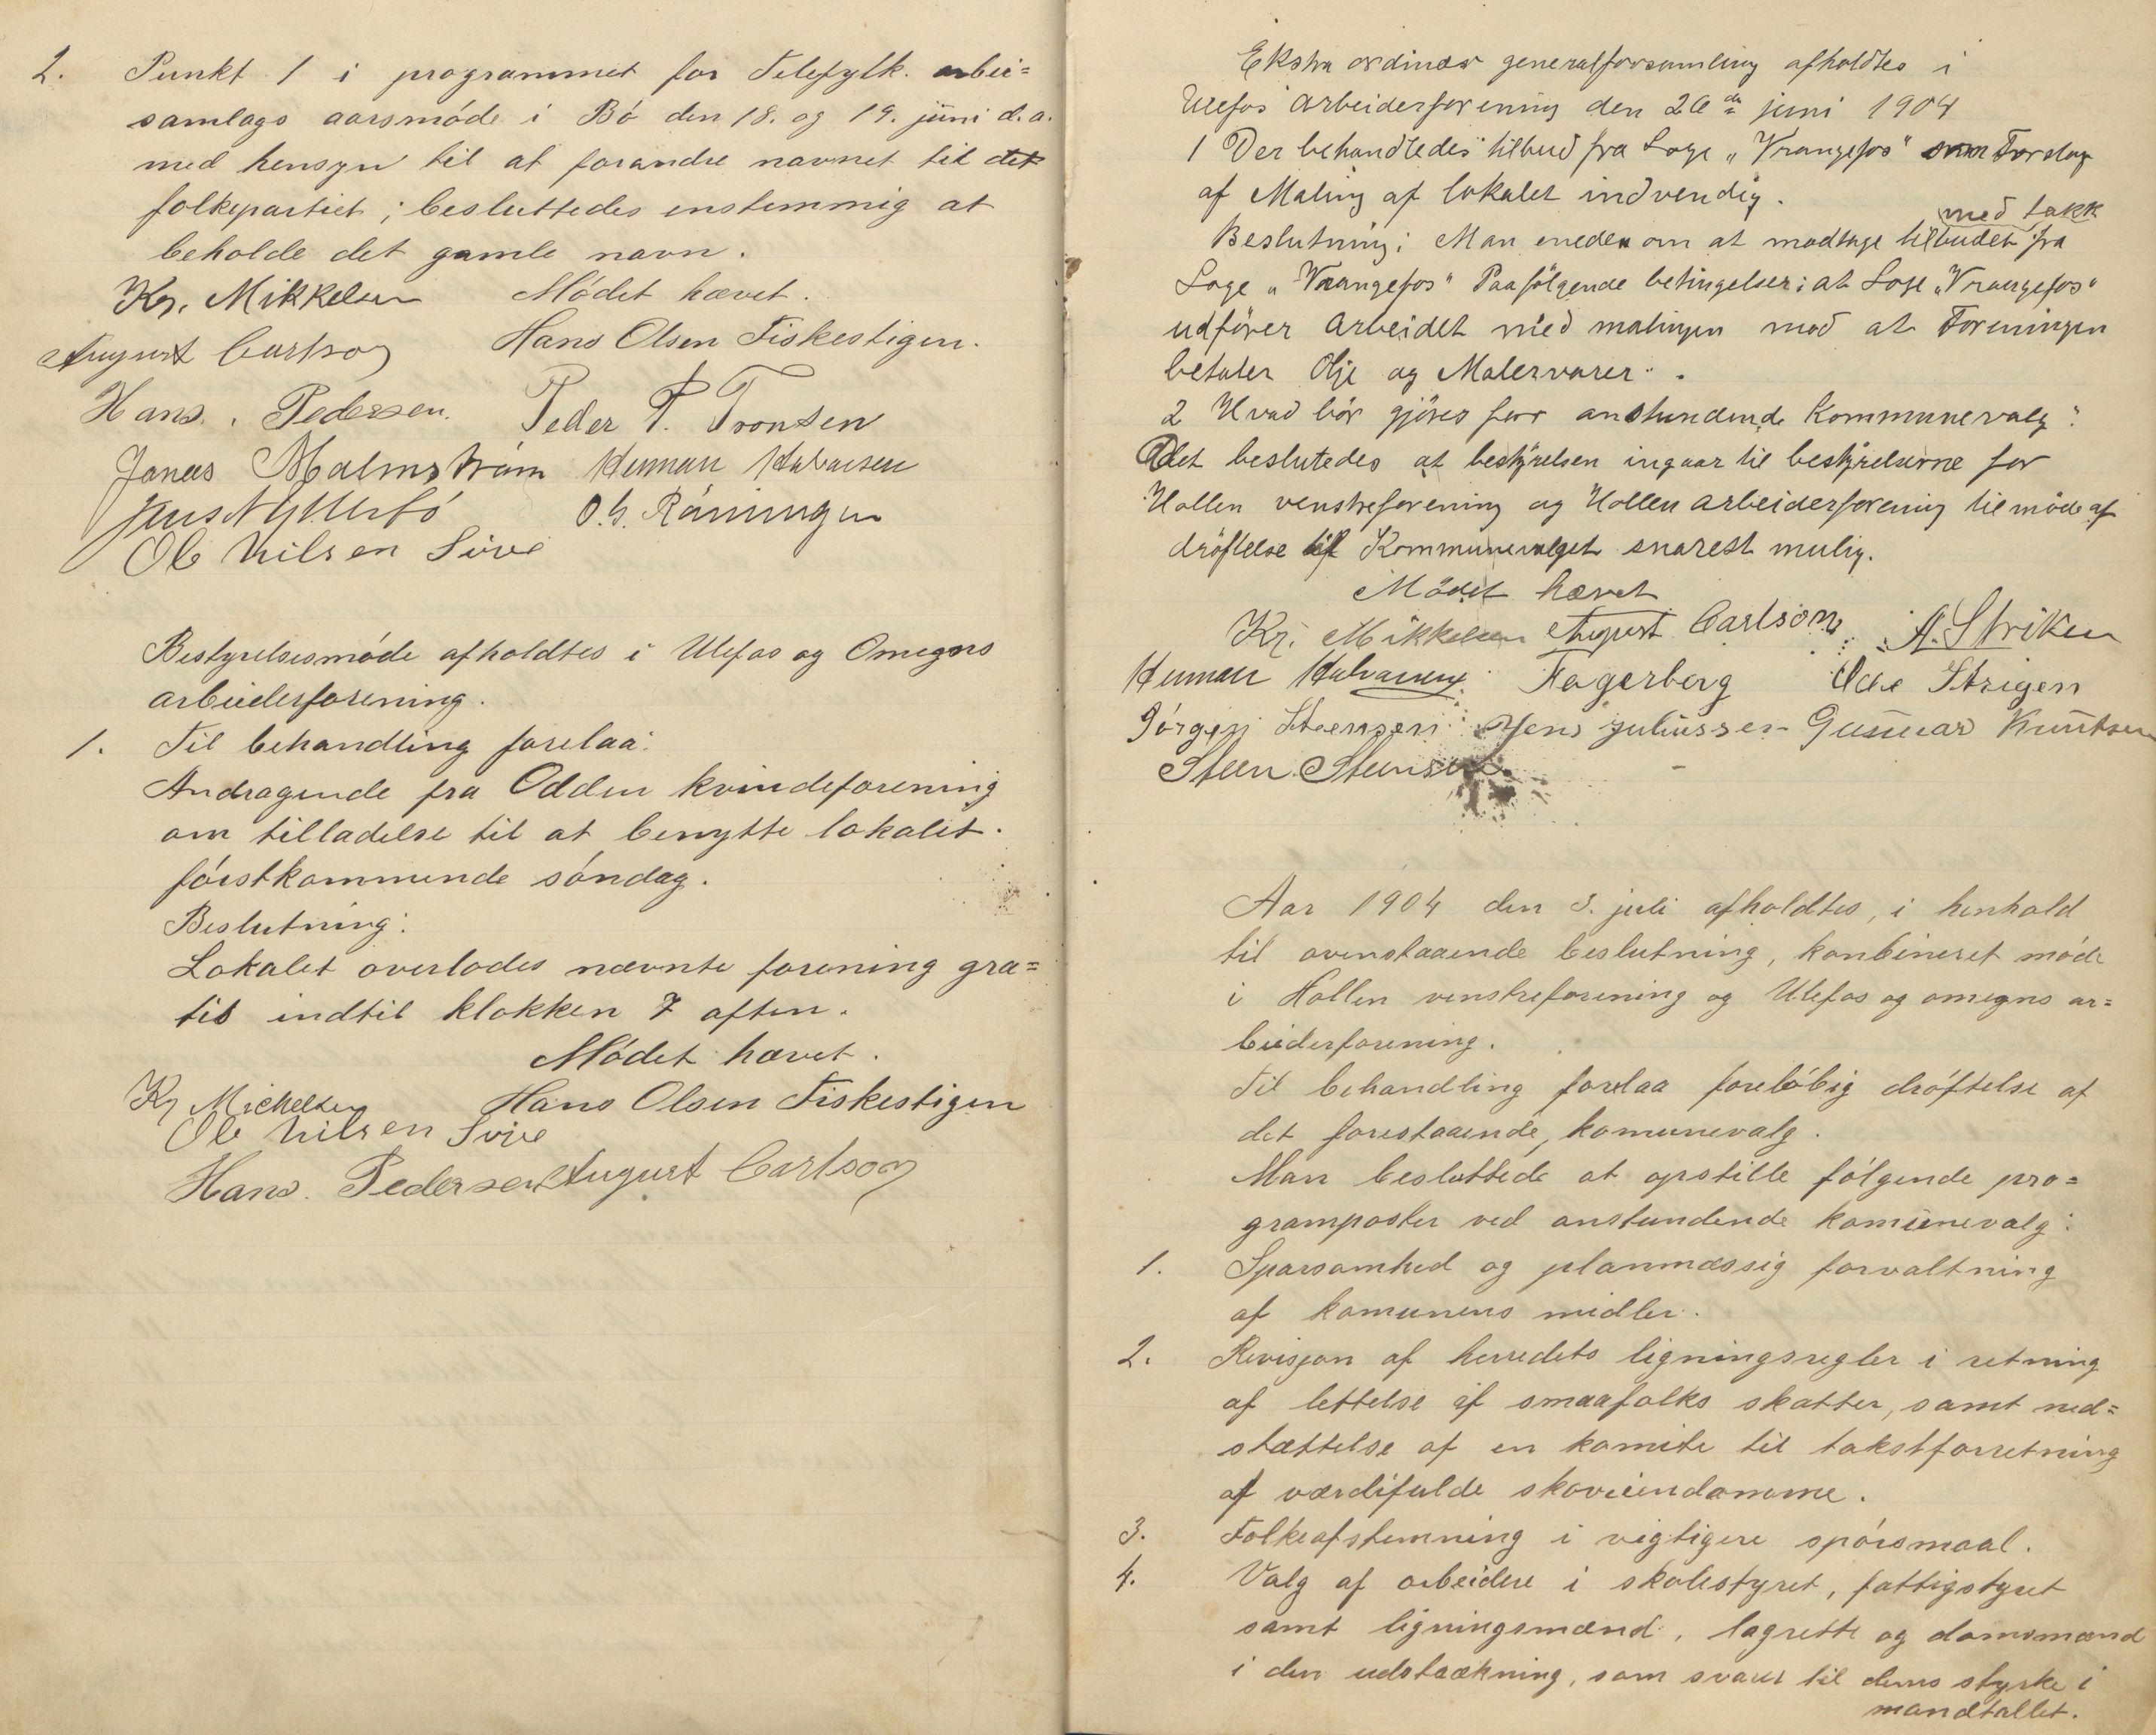 2. Punkt 1 i programmet for Telefylk. arbei=
samlags aarsmøde i Bø den 18. og 19. juni d.a.
med hensyn til at forandre navnet til det
folkepartiet; besluttedes enstemmig at
beholde det gamle navn.
Kr. Mikkelsen Mødet hævet.
August Carlson Hans Olsen Fiskestigen.
Hans. Pedersen. Peder P. Tronsen
Jonas Malmstrøm Herman Halvorsen
Jens Nyhusbø O. G. Røningen
Ole Nilsen Sove
Bestyrelsesmøde afholdtes i Ulefos og Omegns
arbeiderforening.
1. Til behandling forelaa:
Andragende fra Odden kvindeforening
om tilladelse til at benytte lokalet
førstkommende søndag.
Beslutning:
Lokalet overlodes nævnte forening gra=
tis indtil klokken 7 aften.
Mødet hævet.
Kr Michelsen Hans Olsen Fiskestigen
Ole Nilsen Sove
Hans. Pedersen August Carlson
Ekstra ordinær generalforsamling afholdtes i
Ulefos arbeiderforening den 26de juni 1904
1 Der behandledes tilbud fra Loge „Vrangefos" som Forslag
af Maling af lokalet indvendig.
med takk
Beslutning: Man enedes om at modtage tilbudet fra
Loge „Vrangefos" Paa følgende betingelser: at Loge „Vrangefos"
udfører arbeidet med malingen mod at Foreningen
betaler Olje og Malervarer.
2 Hvad bør gjøres for anstundende Kommunevalg:
Det beslutedes at bestyrelsen ingaar til bestyrelserne for
Hollen venstreforening og Hollen arbeiderforening til møde af
drøftelse af Kommunevalget snarest mulig.
Mødet hævet
Kr. Mikkelsen August Carlson A. Striken
Herman Halvorsen Fagerberg Ole Strigen
Jörgen Steensen Jens Juliussen Gunnar Knutsen
Steen Steensen
Aar 1904 den 3. juli afholdtes, i henhold
til ovenstaaende beslutning, konbineret møde
i Hollen venstreforening og Ulefos og omegns ar=
beiderforening.
Til behandling forelaa foreløbig drøftelse af
det forestaaende, komunevalg.
Man besluttede at opstille følgende pro=
gramposter ved anstundende komunevalg:
1. Sparsomhed og planmæssig forvaltning
af komunens midler.
2. Revisjon af herredets ligningsregler i retning
af lettelse af smaafolks skatter, samt ned=
stættelse af en komite til takstforretning
af værdifulde skoveiendomme.
3. Folkeafstemning i vigtigere spørsmaal.
4. Valg af arbeidere i skolestyret, fattigstyret
samt ligningsmænd, lagrette og domsmænd
i den udstrækning, som svarer til dens styrke i
mandtallet.